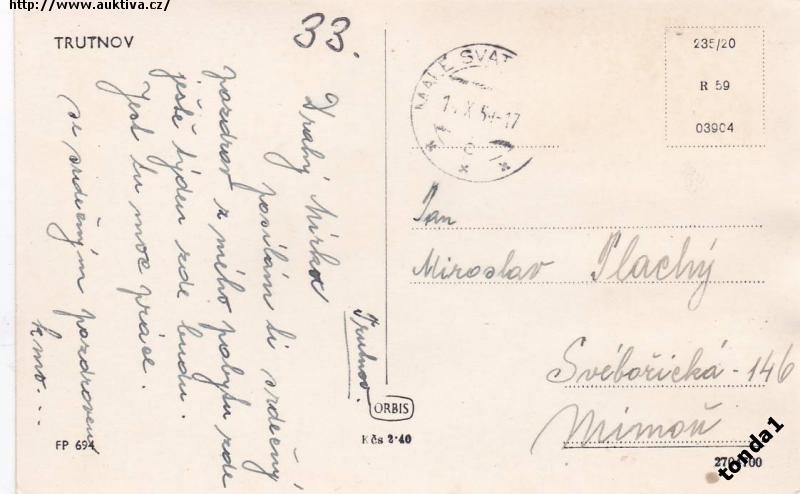 http://www.auktiva.cz/
TRUTNOV
33.
Drahý Mirka
posílám ti srdečný
pozdrav z mého pobytu zde
ještě týden zde budu.
Jest tu moc práce.
se srdečným pozdravem
kmo...
Trutnov.
MALÉ SVAT
X 5 -17
235/20
R 59
03904
Pan
Miroslav Plachý
Svébořická - 146
Mimoň
ORBIS
Kčs 2·40
FP 694
tonda1